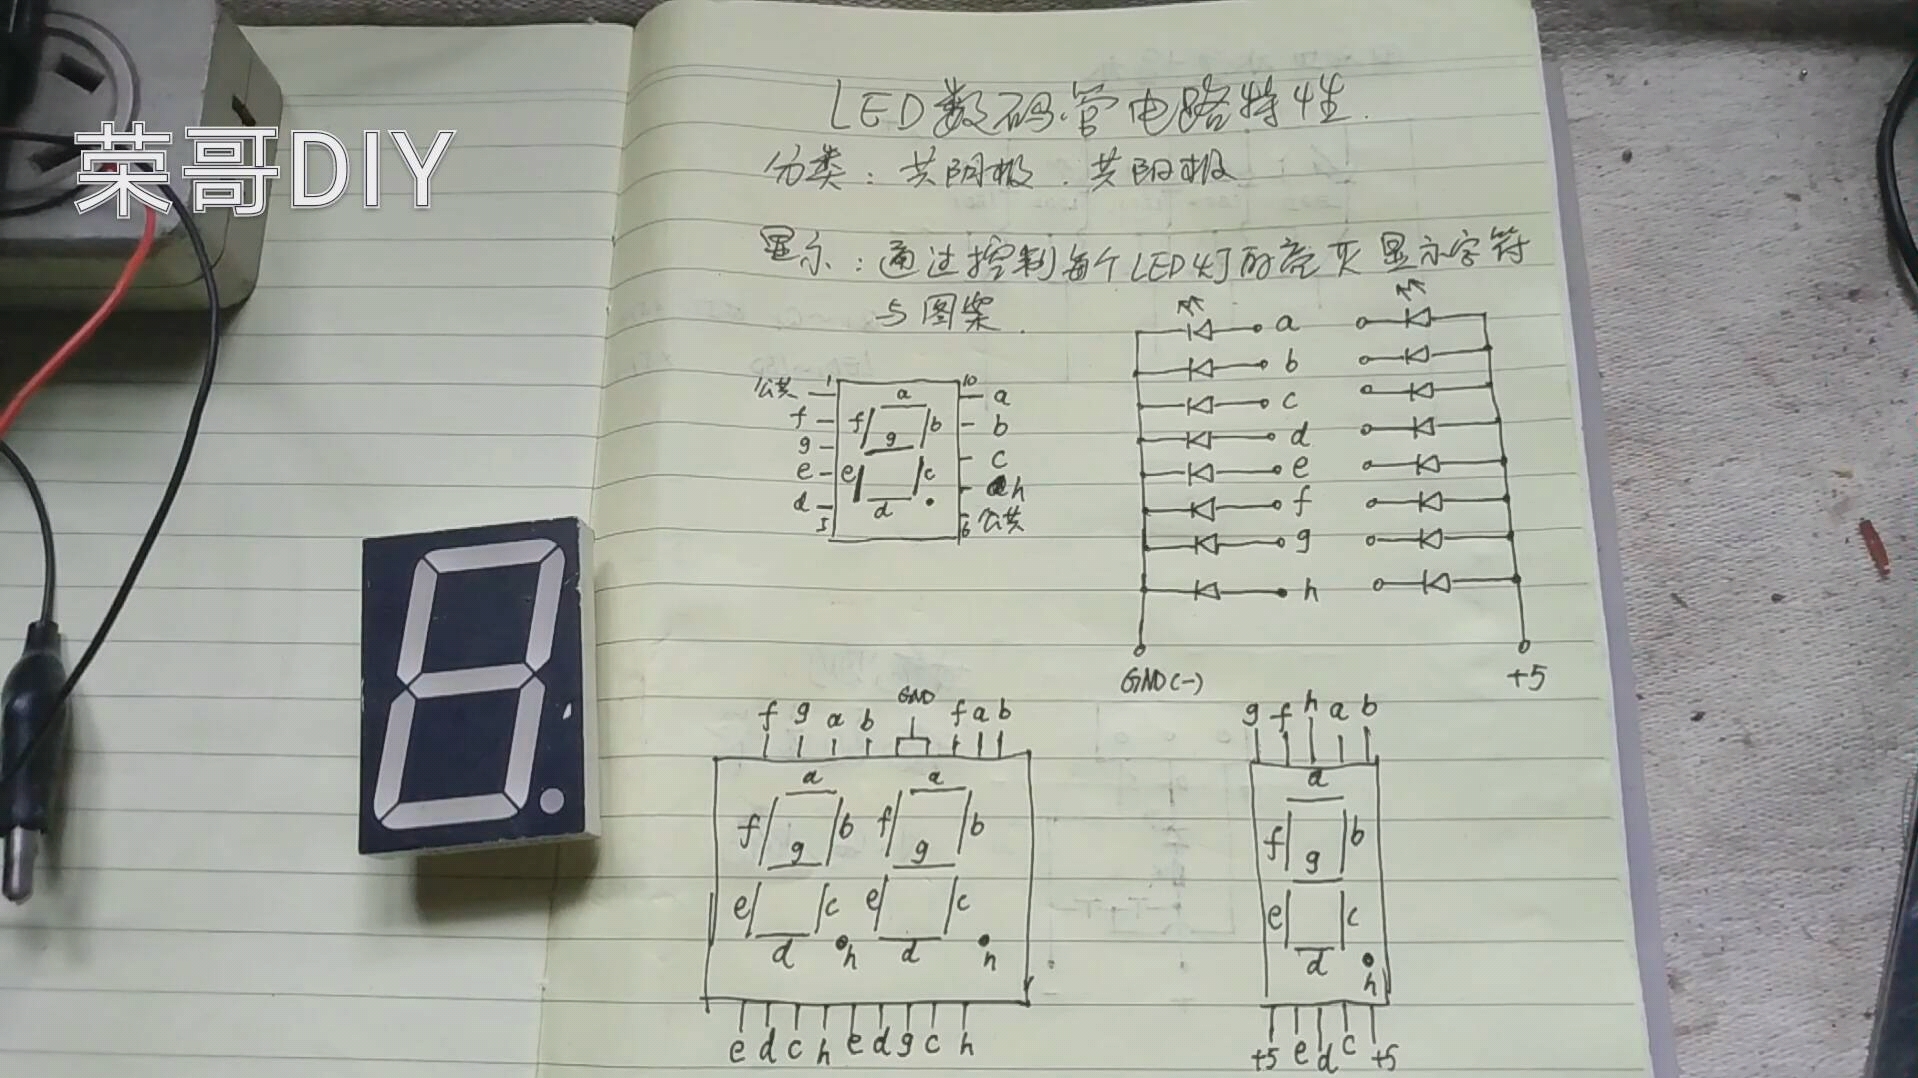 荣哥DIY
LED数码管电路特性.
分类：共阴极．共阳极
显示：通过控制每个LED灯的亮灭显示字符
与图案．
公共 1 10 a
f b
g c
e h
d 5 6 公共
a
f b
g
e c
d
a
b
c
d
e
f
g
h
GND(-) +5
f g a b GND f a b
a a
f b f b
g g
e c e c
d h d h
e d c h e d g c h
g f h a b
a
f b
g
e c
d h
+5 e d c +5